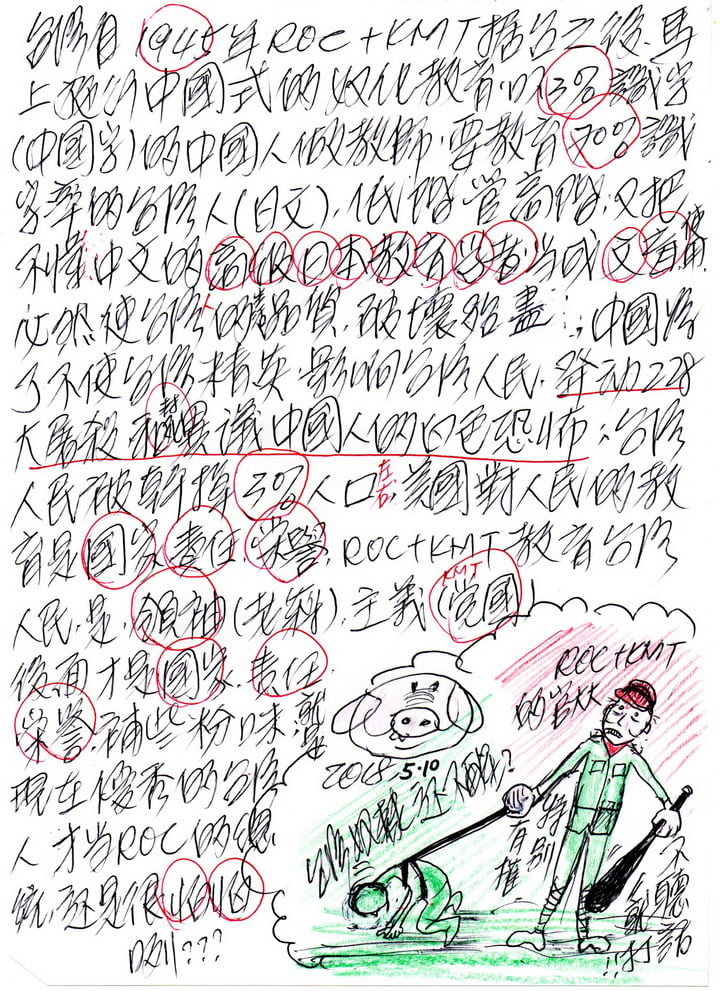 台灣自1945年ROC+KMT據台之後.馬
上施行中國式的奴化教育.以3%識字
(中國字)的中國人做教師.要教育70%識
字率的台灣人(日文).低階管高階.又把
不懂中文的高級日本教育學者当成文盲
必然使台灣人的品質.破壞殆盡;中國為
了不使台灣精英.影响台灣人民.發动228
大屠殺和異議中國人的白色恐怖;台灣
人民被幹掉3%人口左右.美國對人民的教
育是國家.責任.榮譽.ROC+KMT教育台灣
人民.是.領袖(老蔣).主義(党國)
KMT
後面才是國家.責任.
榮譽.補些粉味.就是
現在優秀的台灣
人才当ROC的總
統.还是很
ROC+KMT
的
2018.5.10
特別
有權
不聽話
就打!!